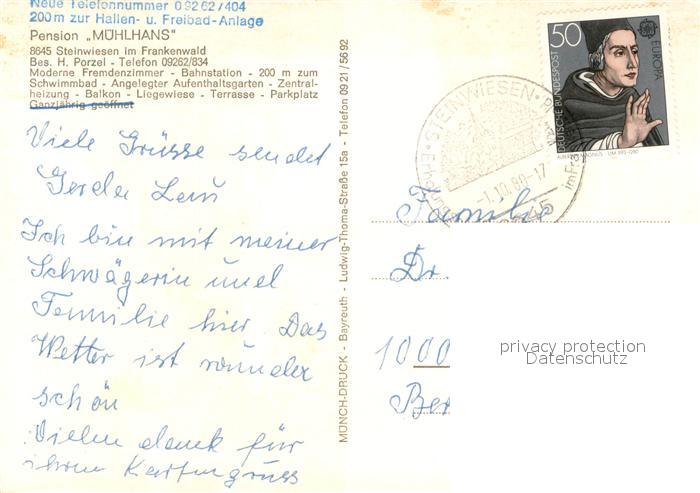 Neue Telefonnummer 09262/404
200 m zur Hallen- u. Freibad-Anlage
Pension „MÜHLHANS"
8645 Steinwiesen im Frankenwald
Bes. H. Porzel - Telefon 09262/834
Moderne Fremdenzimmer - Bahnstation - 200 m zum
Schwimmbad - Angelegter Aufenthaltsgarten - Zentral-
heizung - Balkon - Liegewiese - Terrasse - Parkplatz
Ganzjährig geöffnet
Viele Grüsse sendet
Gerda
Ich bin mit meiner
Schwägerin und
Familie hier. Das
Wetter ist wunder
schön
Vielen dank für
ihren Kartengruss
MÜNCH-DRUCK - Bayreuth - Ludwig-Thoma-Straße 15a - Telefon 09 21 / 56 92
50
DEUTSCHE BUNDESPOST
EUROPA
STEINWIESEN
-1.10.80-17
Familie
Dr.
1000
Ber
privacy protection
Datenschutz